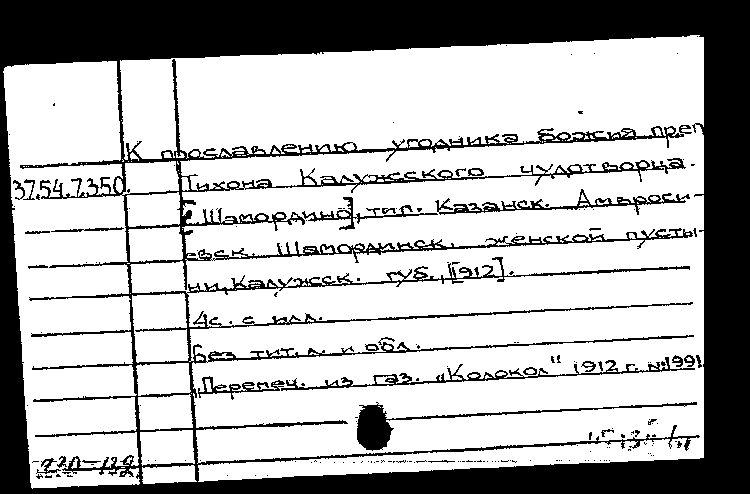 К прославлению угодника Божия преп
37.54.7.350. Тихона Калужского чудотворца.
[Шамордино], тип. Казанск. Амвроси-
евск. Шамординск. женской пусты-
ни, Калужск. губ., [1912].
4с. с илл.
Без тит. л. и обл.
„Перепеч. из газ. „Колокол" 1912 г. №1991